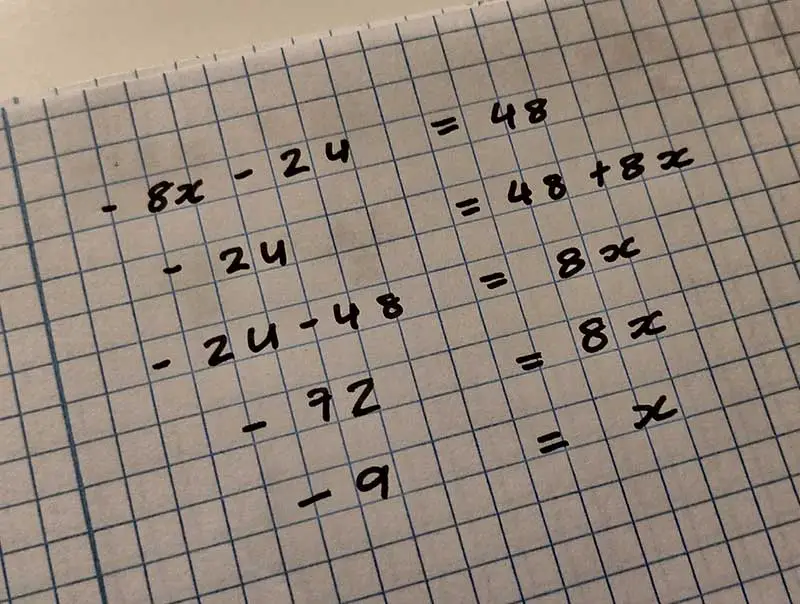 - 8x - 24 = 48
- 24 = 48 + 8x
- 24 - 48 = 8x
- 72 = 8x
- 9 = x